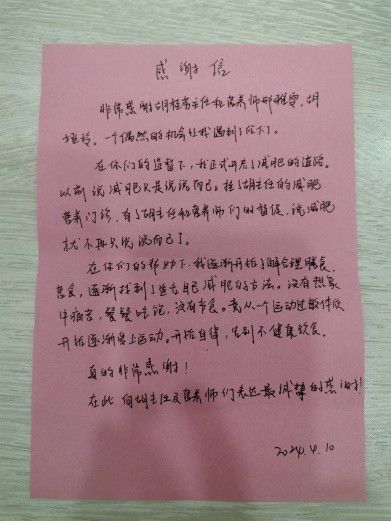 感谢信
非常感谢胡桂芳主任和营养师郝雅雯,胡
一个偶然的机会让我遇到了你们。
在你们的监督下,我正式开启了减肥的道路。
以前说减肥只是说说而已。挂了胡主任的减肥
营养门诊,有了胡主任和营养师们的督促,说减肥
就不再只说说而已了。
在你们的帮助下,我逐渐开始了解合理膳食,
营食,逐渐找到了适合自己减肥的方法。没有想象
中痛苦,餐餐吃饱,没有节食。竟从一个运动过敏体质
开始逐渐爱上运动。开始自律,告别不健康饮食。
真的非常感谢!
在此向胡主任及营养师们表达最诚挚的感谢!
2024.4.10